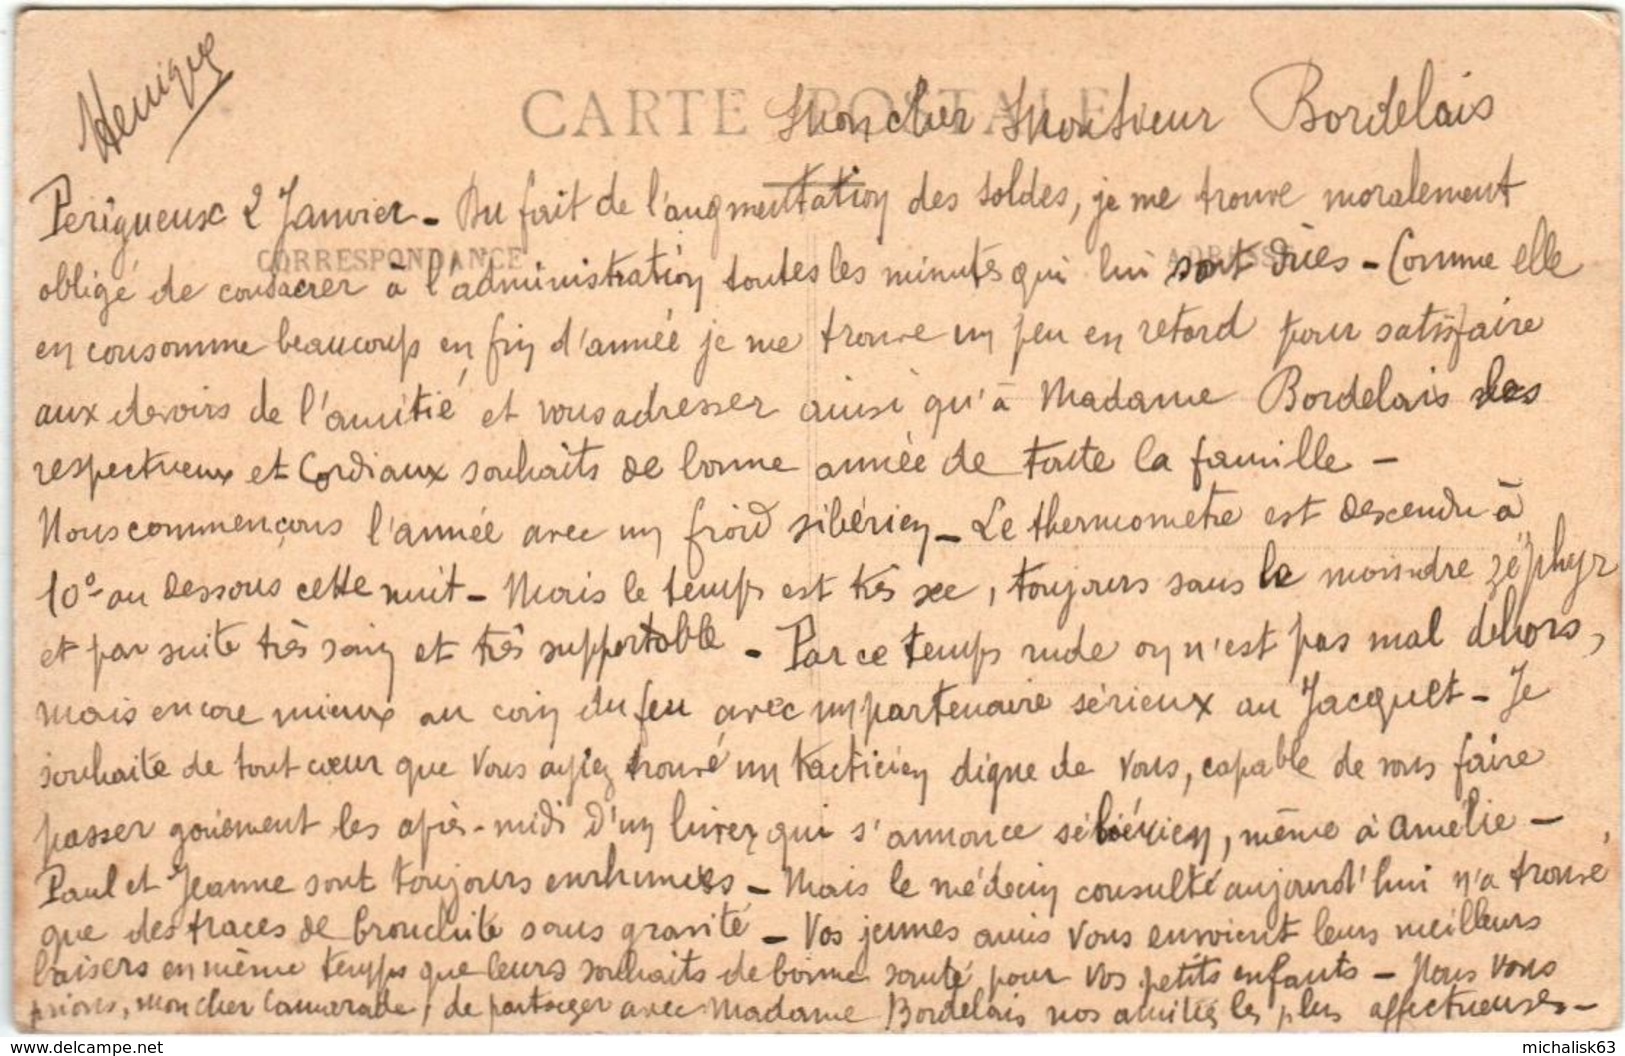 Henique
CARTE POSTALE
Mon cher Monsieur Bordelais
Périgueux 2 Janvier - Du fait de l'augmentation des soldes, je me trouve moralement
CORRESPONDANCE
ADRESSE
obligé de consacrer à l'administration toutes les minutes qui lui sont dües - Comme elle
en consomme beaucoup en fin d'année je me trouve un peu en retard pour satisfaire
aux devoirs de l'amitié et vous adresser ainsi qu'à Madame Bordelais les
respectueux et cordiaux souhaits de bonne année de toute la famille -
Nous commençons l'année avec un froid sibérien - Le thermomètre est descendu à
10° au dessous cette nuit - Mais le temps est très sec, toujours sans le moindre zéphyr
et par suite très sain et très supportable - Par ce temps rude on n'est pas mal dehors,
mais encore mieux au coin du feu avec un partenaire sérieux au Jacquet - Je
souhaite de tout cœur que vous ayiez trouvé un tacticien digne de vous, capable de vous faire
passer gaiement les après-midi d'un hiver qui s'annonce sibérien, même à Amélie -
Paul et Jeanne sont toujours enrhumés - Mais le médecin consulté aujourd'hui n'a trouvé
que des traces de bronchite sans gravité - Vos jeunes amis vous envoient leurs meilleurs
baisers en même temps que leurs souhaits de bonne santé pour vos petits enfants - Nous vous
prions, mon cher Camarade, de partager avec Madame Bordelais nos amitiés les plus affectueuses -
delcampe.net
michalisk63